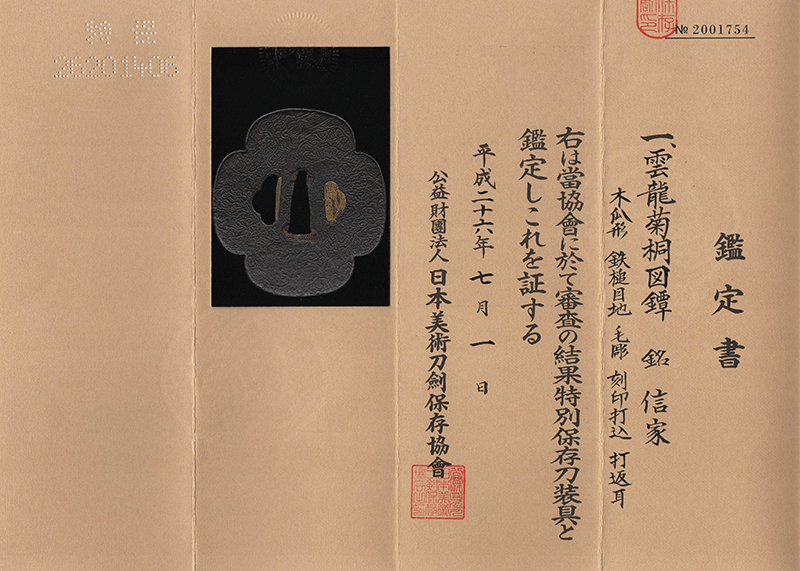 № 2001754
鑑定書
一、雲龍菊桐図鐔 銘 信家
木瓜形 鉄槌目地 毛彫 刻印打込 打返耳
右は當協會に於て審査の結果特別保存刀装具と
鑑定しこれを証する
平成二十六年 七月 一日
公益財團法人 日本美術刀劍保存協會
特保
26201406